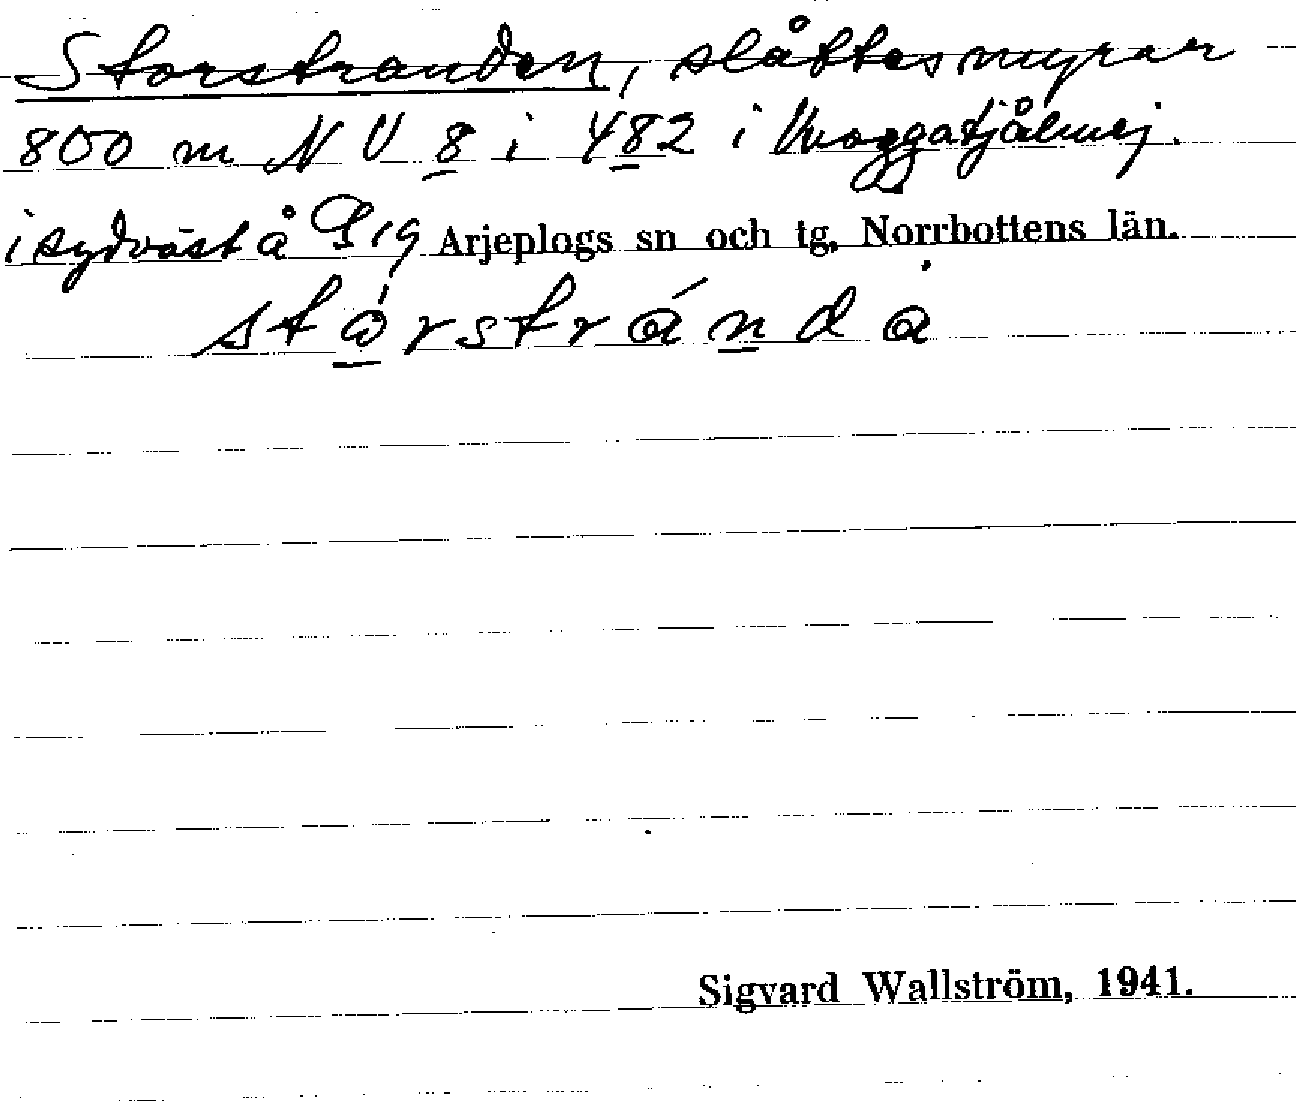 Storstranden, slåttesmyrar
800 m N V 8 i 482 i
i sydväst å S 19 Arjeplogs sn och tg, Norrbottens län.
stòrstránda
Sigvard Wallström, 1941.